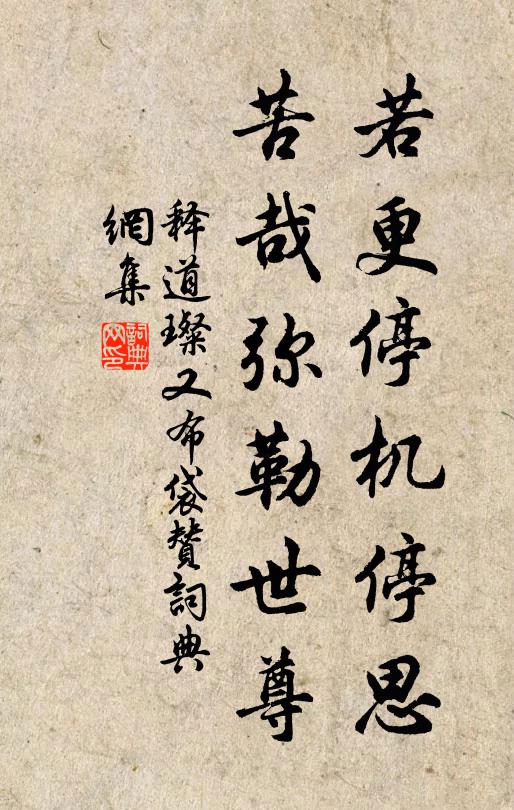 若更停机停思
苦哉弥勒世尊
释道璨又布袋赞詞典
網集
詞典
网印